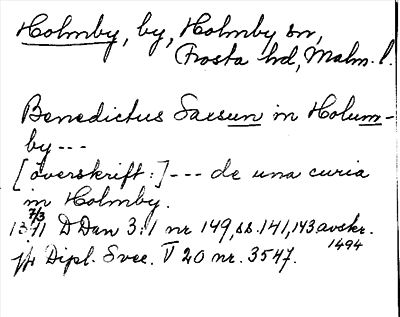 Holmby, by, Holmby sn,
Frosta hd, Malm. l.
Benedictus Saxsun in Holum-
by ---
[överskrift:] --- de una curia
in Holmby.
7/3
1371 D Dan 3:1 nr 149, ss. 141, 143 avskr.
1494
jfr Dipl. Svec. V 20 nr. 3547.